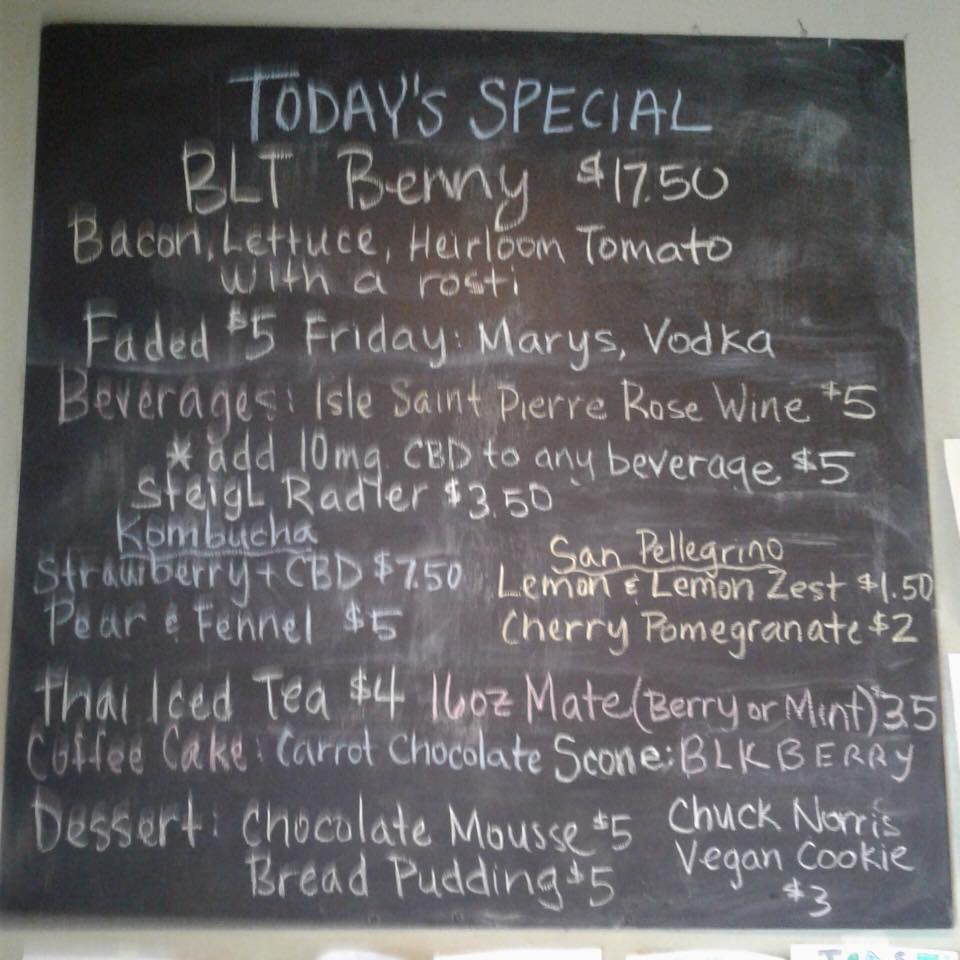 TODAY'S SPECIAL
BLT Benny $17.50
Bacon, Lettuce, Heirloom Tomato
with a rosti
Faded $5 Friday: Marys, Vodka
Beverages: Isle Saint Pierre Rose Wine $5
* add 10mg CBD to any beverage $5
Steigl Radler $3.50
Kombucha
Strawberry + CBD $7.50
Pear & Fennel $5
San Pellegrino
Lemon & Lemon Zest $1.50
Cherry Pomegranate $2
Thai Iced Tea $4 16oz Mate (Berry or Mint) $3.5
Coffee Cake: Carrot Chocolate Scone: BLKBERRY
Dessert: Chocolate Mousse $5
Bread Pudding $5
Chuck Norris
Vegan Cookie
$3